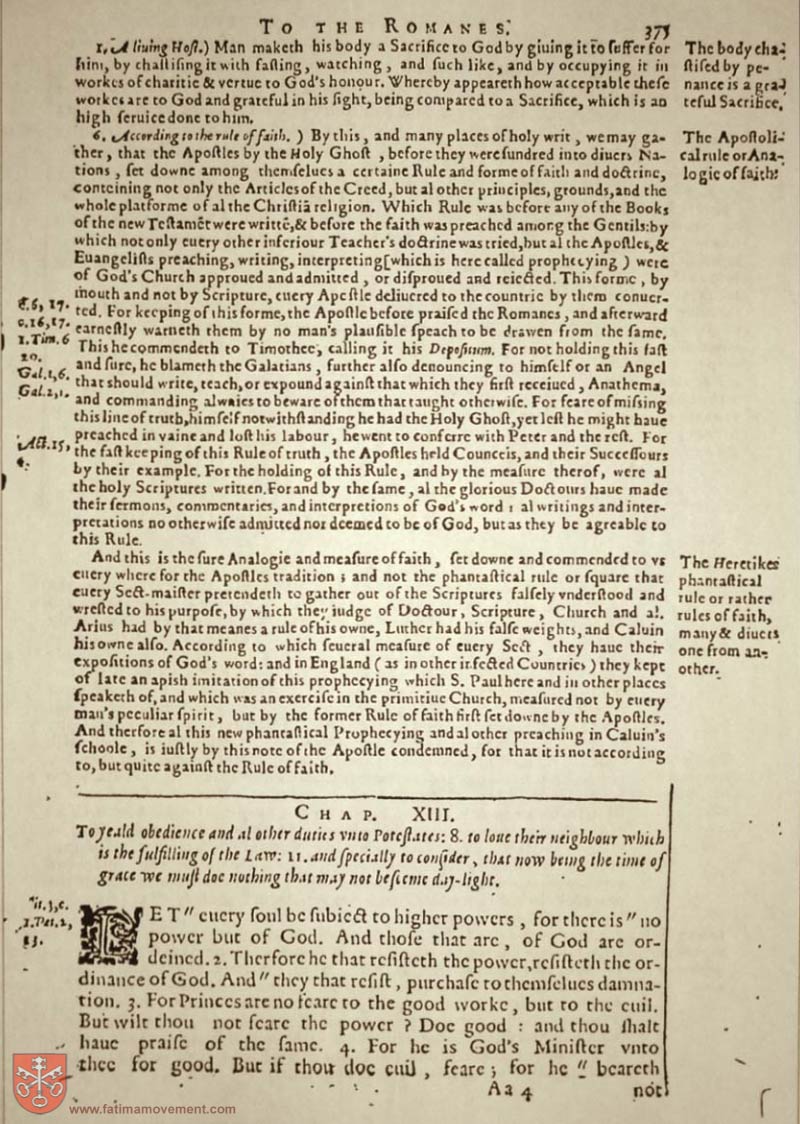 TO THE ROMANES. 375
1. A liuing Hoſt.) Man maketh his body a Sacrifice to God by giuing it to ſuffer for
him, by chaſtiſing it with faſting, watching, and ſuch like, and by occupying it in
workes of charitie & vertue to God's honour. Whereby appeareth how acceptable theſe
workes are to God and grateful in his ſight, being compared to a Sacrifice, which is an
high ſeruice done to him.
The body cha-
ſtiſed by pe-
nance is a gra-
teful Sacrifice.
6. According to the rule of faith.) By this, and many places of holy writ, we may ga-
ther, that the Apoſtles by the Holy Ghoſt, before they were ſundred into diuers Na-
tions, ſet downe among themſelues a certaine Rule and forme of faith and doctrine,
conteining not only the Articles of the Creed, but al other principles, grounds, and the
whole platforme of al the Chriſtiã religion. Which Rule was before any of the Books
of the new Teſtamẽt were writtẽ, & before the faith was preached among the Gentils: by
which not only euery other inferiour Teacher's doctrine was tried, but al the Apoſtles, &
Euangeliſts preaching, writing, interpreting (which is here called prophecying) were
of God's Church approued and admitted, or diſproued and reiected. This forme, by
mouth and not by Scripture, euery Apoſtle deliuered to the countrie by them conuer-
ted. For keeping of this forme, the Apoſtle before praiſed the Romanes, and afterward
earneſtly warneth them by no man's plauſible ſpeach to be drawen from the ſame.
This he commendeth to Timothee, calling it his Depoſitum. For not holding this faſt
and ſure, he blameth the Galatians, further alſo denouncing to himſelf or an Angel
that should write, teach, or expound againſt that which they firſt receiued, Anathema,
and commanding alwaies to beware of them that taught otherwiſe. For feare of miſſing
this line of truth, himſelf notwithſtanding he had the Holy Ghoſt, yet leſt he might haue
preached in vaine and loſt his labour, he went to conferre with Peter and the reſt. For
the faſt keeping of this Rule of truth, the Apoſtles held Councels, and their Succeſſours
by their example. For the holding of this Rule, and by the meaſure therof, were al
the holy Scriptures written. For and by the ſame, al the glorious Doctours haue made
their ſermons, commentaries, and interpretions of God's word: al writings and inter-
pretations no otherwiſe admitted nor deemed to be of God, but as they be agreable to
this Rule.
The Apoſtoli-
cal rule or Ana-
logie of faith.
6, 17.
c. 16, 17.
1. Tim. 6
20.
Gal. 1, 6.
Gal. 2, 1.
Act. 15,
And this is the ſure Analogie and meaſure of faith, ſet downe and commended to vs
euery where for the Apoſtles tradition; and not the phantaſtical rule or ſquare that
euery Sect-maiſter pretendeth to gather out of the Scriptures falſely vnderſtood and
wreſted to his purpoſe, by which they iudge of Doctour, Scripture, Church and al.
Arius had by that meanes a rule of his owne, Luther had his falſe weights, and Caluin
his owne alſo. According to which ſeueral meaſure of euery Sect, they haue their
expoſitions of God's word: and in England (as in other infected Countries) they kept
of late an apish imitation of this prophecying which S. Paul here and in other places
ſpeaketh of, and which was an exerciſe in the primitiue Church, meaſured not by euery
man's peculiar ſpirit, but by the former Rule of faith firſt ſet downe by the Apoſtles.
And therfore al this new phantaſtical Prophecying and al other preaching in Caluin's
ſchoole, is iuſtly by this note of the Apoſtle condemned, for that it is not according
to, but quite againſt the Rule of faith.
The Heretikes
phantaſtical
rule or rather
rules of faith,
many & diuers
one from an-
other.
CHAP. XIII.
To yeald obedience and al other duties vnto Poteſtates: 8. to loue their neighbour which
is the fulfilling of the Law: 11. and ſpecially to conſider, that now being the time of
grace we muſt doe nothing that may not beſeeme day-light.
1. Pet. 2,
13.
LET " euery ſoul be ſubiect to higher powers, for there is " no
power but of God. And thoſe that are, of God are or-
deined. 2. Therfore he that reſiſteth the power, reſiſteth the or-
dinance of God. And " they that reſiſt, purchaſe to themſelues damna-
tion. 3. For Princes are no feare to the good worke, but to the euil.
But wilt thou not feare the power? Doe good: and thou ſhalt
haue praiſe of the ſame. 4. For he is God's Miniſter vnto
thee for good. But if thou doe euil, feare; for he " beareth
Aa 4 not
www.fatimamovement.com